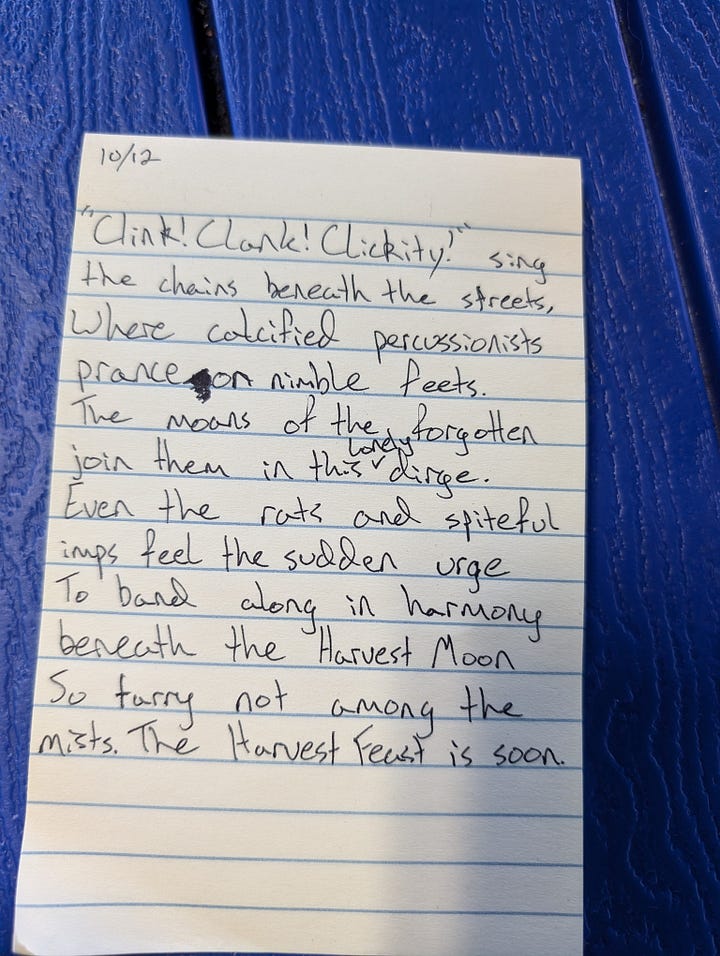 10/12
"Clink! Clank! Clickity!" sing
the chains beneath the streets,
Where calcified percussionists
prance on nimble feets.
The moans of the forgotten
join them in this lonely dirge.
Even the rats and spiteful
imps feel the sudden urge
To band along in harmony
beneath the Harvest Moon
So tarry not among the
mists. The Harvest Feast is soon.